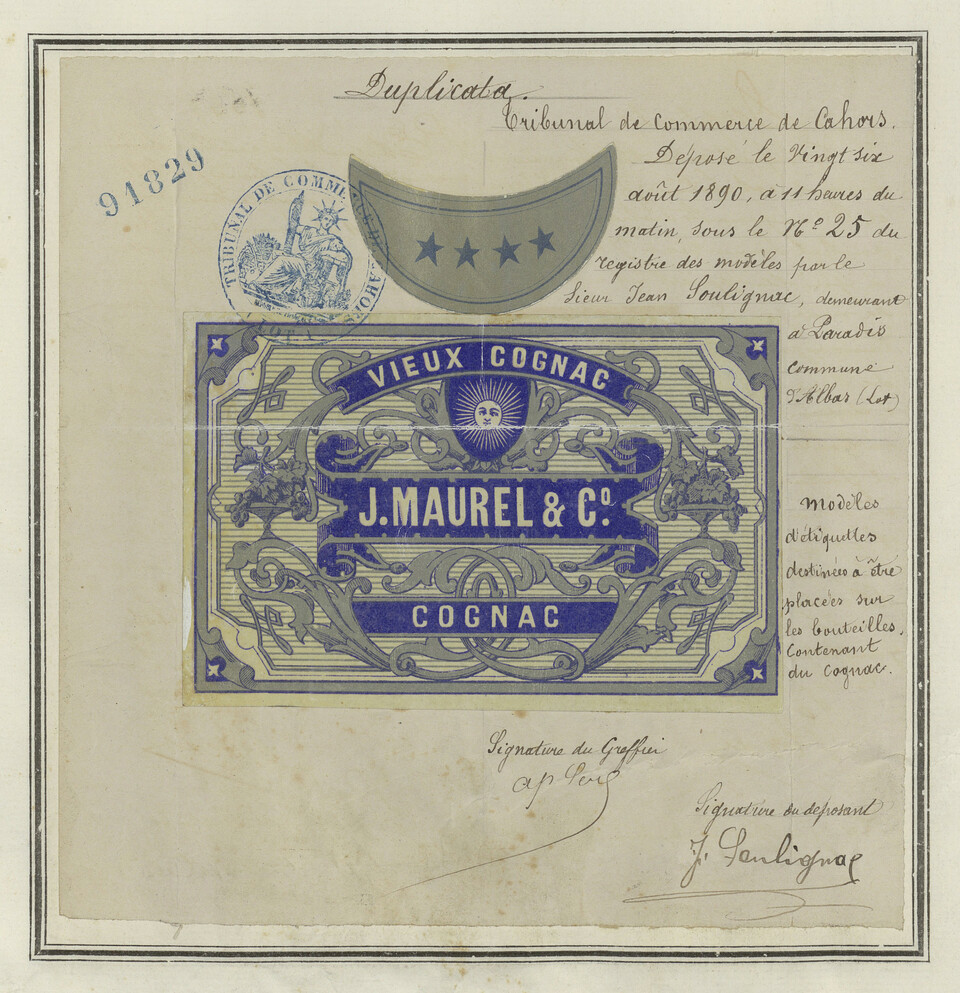 Duplicata.
Tribunal de Commerce de Cahors.
Déposé le Vingt six
août 1890, à 11 heures du
matin, sous le Nº 25 du
registre des modèles par le
Sieur Jean Soulignac, demeurant
à Paradis
commune
d'Albas (Lot)
91829
TRIBUNAL DE COMMERCE CAHORS
LOT
VIEUX COGNAC
J. MAUREL & Cº.
COGNAC
Modèles
d'étiquettes
destinées à être
placées sur
les bouteilles.
Contenant
du cognac.
Signature du Greffier
Signature du déposant
J. Soulignac